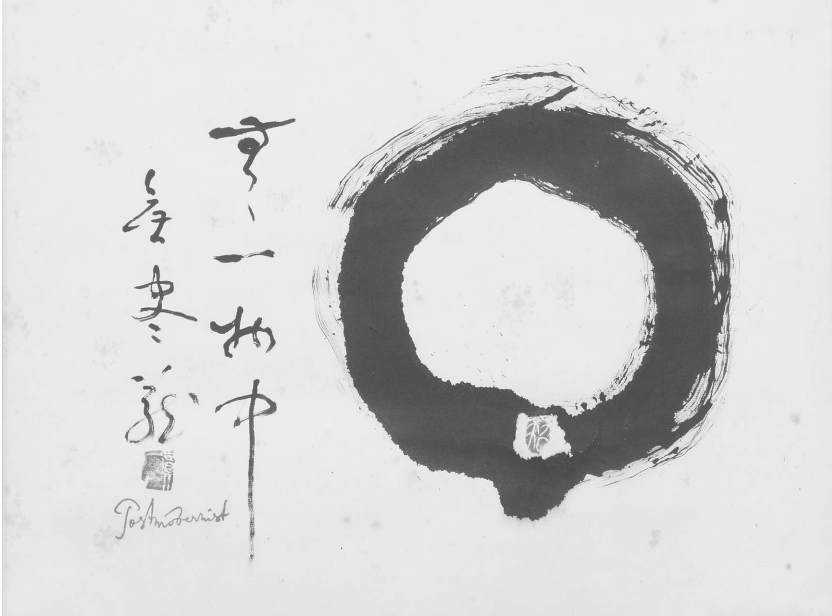 無一物中
無尽蔵
Postmodernist